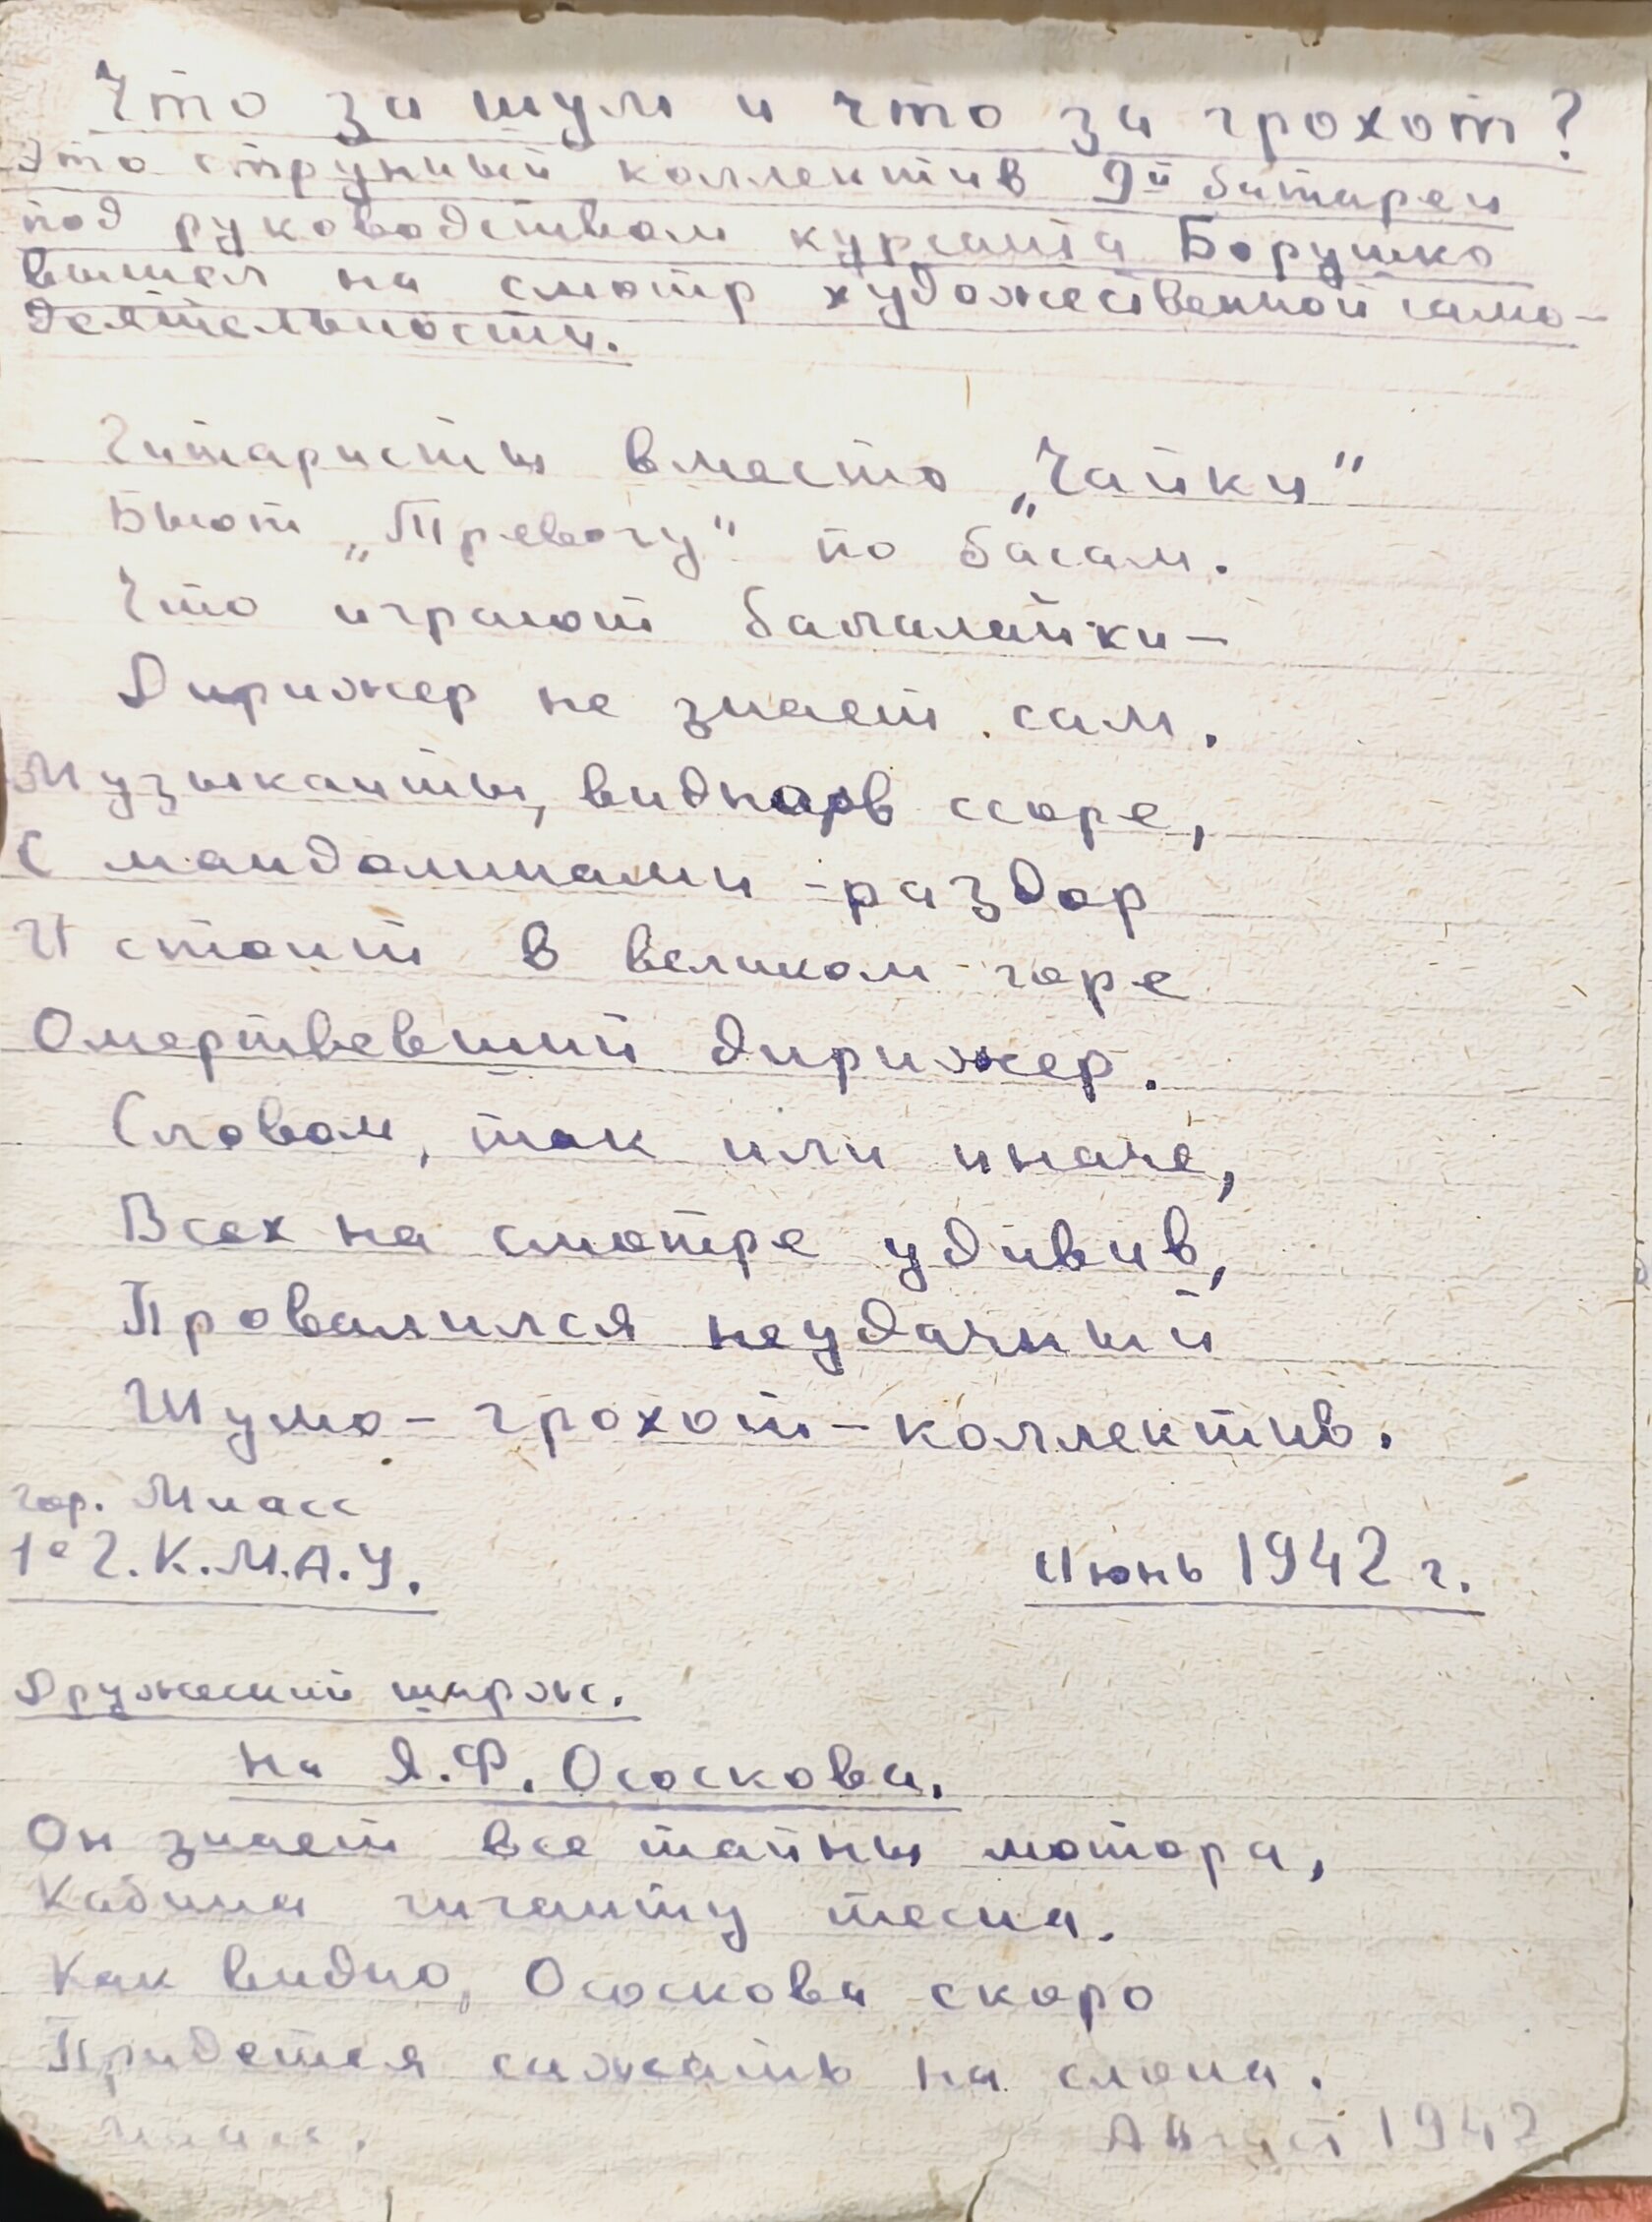 Что за шум и что за грохот?
Это струнный коллектив 9й батареи
под руководством курсанта Борушко
вышел на смотр художественной само-
деятельности.
Гитаристы вместо „Чайки"
Бьют „Тревогу" по басам.
Что играют балалайки—
Дирижер не знает сам.
Музыканты, видно, в ссоре,
С мандолинами - раздор
И стоит в великом горе
Омертвевший дирижер.
Словом, так или иначе,
Всех на смотре удивив,
Провалился неудачный
Шумо-грохот-коллектив.
гор. Миасс
1е Ч.К.М.А.У.
июнь 1942 г.
Дружеский шарж.
на Я.Ф. Ососкова.
Он знает все тайны мотора,
Кабина гиганту тесна.
Как видно, Ососкова скоро
Придется сажать на слона.
г. Миасс.
Август 1942